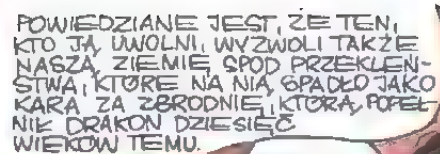 POWIEDZIANE JEST, ŻE TEN,
KTO JĄ UWOLNI, WYZWOLI TAKŻE
NASZĄ ZIEMIĘ SPOD PRZEKLEŃ-
STWA, KTÓRE NA NIĄ SPADŁO JAKO
KARA ZA ZBRODNIĘ, KTÓRĄ POPEŁ
NIŁ DRAKON DZIESIĘĆ
WIEKÓW TEMU.